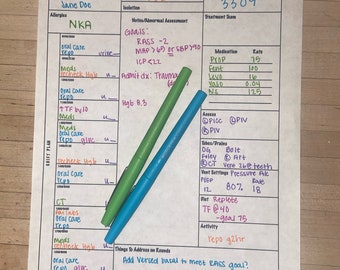 Jane Doe
3309
Isolation
Allergies
NKA
Notes/Abnormal Assessment
Treatment Team
Goals:
RASS -2
MAP >65 or SBP >90
ICP <22
Admit dx: Trauma
Hgb 8.3
Medication Rate
Prop 75
Fent 100
Levo 16
Vaso 0.04
NS 125
oral care
repo urine
Meds
recheck Hgb u
oral care
repo u
Meds
u
oral care
repo gluc u
TF by 10
Meds
u
oral care
repo u
recheck Hgb
u
CT u
Fan lines
oral care
repo gluc u
Meds
recheck Hgb u
oral care
repo u
BRIEF PLAN
Access
PICC PIV
PIV
Tubes/Drains
OG Bolt
Foley Art
CT
Vent Settings Pressure File
PEEP Rate
12 80% 18
Diet Replete
TF @ 40
-goal 75
Activity
repo q2hr
Things To Address on Rounds
Add Versed basal to meet RASS goal?